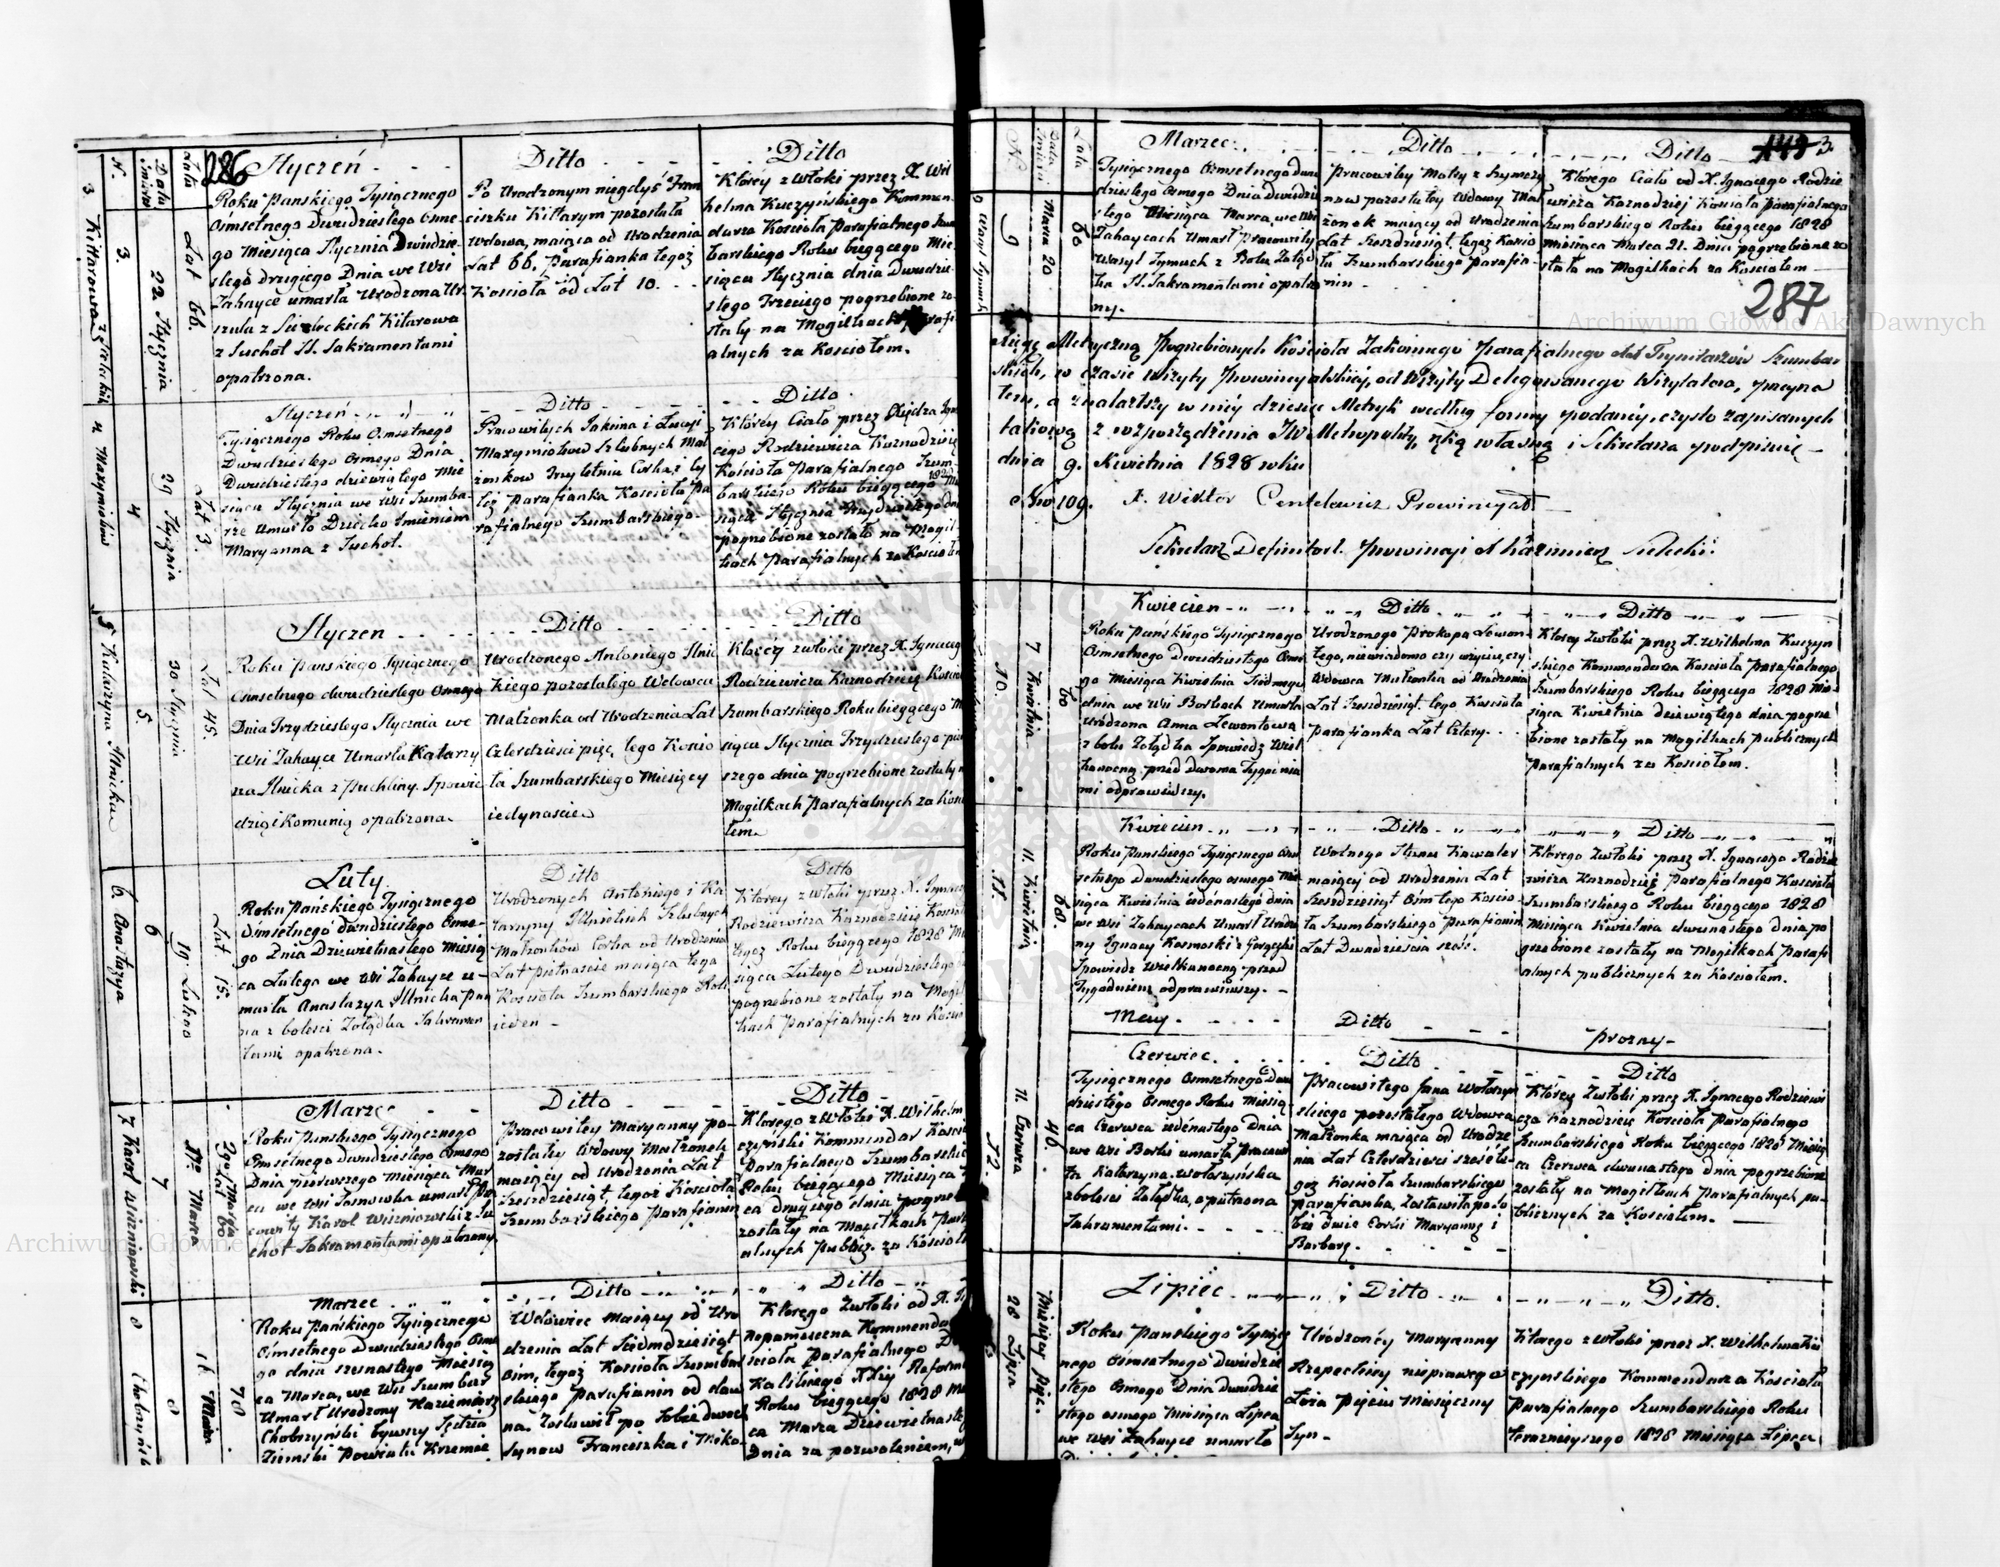 286
Styczeń
Roku Pańskiego Tysiącznego
Osmsetnego Dwudziestego Osme
go Miesiąca Stycznia Dwudzie
stego drugiego Dnia we Wsi
Zahayce umarła Urodzona Ur
szula z Kitarowa
z Suchot SS. Sakramentami
opatrzona.
Ditto
Po Urodzonym niegdyś Fran
ciszku Kitarym pozostała
Wdowa, maiąca od Urodzenia
Lat 66. Parafianka tegoż
Kościoła od Lat 10.
Ditto
Którey zwłoki przez X. Wil
helma Kuczyńskiego Kommen
darza Kościoła Parafialnego Szum
barskiego Roku bieżącego Mie
siąca Stycznia dnia Dwudzie
stego Trzeciego pogrzebione zo
stały na Mogiłkach Parafi
alnych za Kościołem.
3
22 Stycznia
Lat 66.
Styczeń
Tysiącznego Roku Osmsetnego
Dwudziestego Osmego Dnia
Dwudziestego dziewiątego Mie
siąca Stycznia we Wsi Szumba
rze Umarło Dziecko Imieniem
Maryanna z Suchot.
Ditto
Pracowitych Jakima i Łucyi
Maxymiohow Szlubnych Mał
żonkow Trzyletnia Corka, z by
też Parafianka Kościoła Pa
rafialnego Szumbarskiego
Ditto
Którey Ciało przez Xiędza Igna
cego Rodziewicza Kaznodzieię
Kościoła Parafialnego Szum
barskiego Roku bieżącego 1828 Mie
siąca Stycznia Trzydziestego dnia
pogrzebione zostało na Mogił
kach Parafialnych za Kościołem
4
29 Stycznia
Lat 3.
Styczen
Roku Panskiego Tysiącznego
Osmsetnego dwudziestego Osmego
Dnia Trzydziestego Stycznia we
Wsi Zahayce Umarła Katarzy
na Ilnicka z Puchliny. Spowie
dzią i Komunią opatrzona
Ditto
Urodzonego Antoniego Ilnic
kiego pozostałego Wdowca
Małżonka od Urodzenia Lat
Czterdzieści pięć, tego Kościo
ła Szumbarskiego Miesięcy
iedynaście
Ditto
Którey zwłoki przez X. Ignacego
Rodziewicza Kaznodzieię Kościoła
Szumbarskiego Roku bieżącego M
siąca Stycznia Trzydziestego pier
szego dnia pogrzebione zostały na
Mogiłkach Parafialnych za Kościo
łem
5.
30 Stycznia
Lat 45.
Luty
Roku Pańskiego Tysiącznego
Osmsetnego dwudziestego Osme
go Dnia Dziewietnastego Miesią
ca Lutego we Wsi Zahayce u
marła Anastazya Ilnicka Pan
na z bolesci Żołądka Sakramen
tami opatrzona.
Ditto
Urodzonych Antoniego i Ka
taryny Ilnickich Szlubnych
Małżonków Corka od Urodzenia
Lat piętnascie maiąca tego
Kościoła Szumbarskiego Rok
ieden
Ditto
Którey zwłoki przez X. Ignacego
Rodziewicza Kaznodzieię Kościoła
tegoż Roku bieżącego 1828 Mie
siąca Lutego Dwudziestego
pogrzebione zostały na Mogił
kach Parafialnych za Kościo
6
6 Anastazya
19 Lutego
Lat 15.
Marzec
Roku Panskiego Tysiącznego
Osmsetnego Dwudziestego Osmego
Dnia pierwszego Miesiąca Mar
ca we Wsi umarł Pra
cowity Karol Wiszniowski z Su
chot Sakramentami opatrzony
Ditto
Pracowitey Maryanny po
zostałey Wdowy Małżonek
maiący od Urodzenia Lat
Szesdziesiąt, tegoż Kościoła
Szumbarskiego Parafianin
Ditto
Którego zwłoki X. Wilhelm
czyński Kommendarz Kościoła
Parafialnego Szumbarskiego
Roku bieżącego Miesiąca
ca drugiego dnia pogrze
zostały na Mogiłkach Para
alnych Publicz. za Kościołem
7
7 Karol Wiszniowski
Marca
Marzec
Roku Pańskiego Tysiącznego
Osmsetnego Dwudziestego Osme
go dnia szesnastego Miesią
ca Marca, we Wsi Szumbar
Umarł Urodzony Kazimierz
Chobrzyński bywszy Sędzia
Ziemski Powiatu Krzemie
Ditto
Wdowiec maiący od Uro
dzenia Lat Siedmdziesiąt
osm, tegoż Kościoła Szumbar
skiego Parafianin od daw
na. Zostawił po sobie dwoch
Synow Franciszka i Miko
Ditto
Którego Zwłoki od X.
Nepomucena Kommenda
ścioła Parafialnego
Roku bieżącego 1828 Mie
ca Marca Dziewietnaste
Dnia za pozwoleniem
8
Marca
78
149 3.
287
Marzec
Tysiącznego Osmsetnego Dwu
dziestego Osmego Dnia Dwudzie
stego Miesiąca Marca, we Wsi
Zahaycach Umarł Pracowity
Wasyl Tymuch z Bolu Żołąd
ka SS. Sakramentami opatrzo
ny.
Ditto
Pracowitey Matry z Szymczy
now pozostałey Wdowy Mał
żonek maiący od Urodzenia
Lat Szesdziesiąt, tegoż Koscio
ła Szumbarskiego Parafia
nin
Ditto
Którego Ciało od X. Ignacego Rodzie
wicza Kaznodziei Kościoła Parafialnego
Szumbarskiego Roku bieżącego 1828
Miesiąca Marca 21. Dnia pogrzebione zo
stało na Mogiłkach za Kościołem
9
Marca 20
60
Xięgę Metryczną Pogrzebionych Kościoła Zakonnego Parafialnego Trynitarzów Szumbar
skich, w czasie Wizyty Prowincyalskiey, od Wizyty Delegowanego Wizytatora,
tem, a znalazłszy w niey dziesięć Metryk według formy podaney, czysto zapisanych
takową z rozporządzenia JW Metropolity, ręką własną i Sekretarza podpisuię
dnia 9. Kwietnia 1828 roku
Nro 109. X. Wiktor Centelewicz Prowincyał
Sekretarz Definitor. Prowincyi X Kazimierz
Kwiecien
Roku Pańskiego Tysiącznego
Osmsetnego Dwudziestego Osme
go Miesiąca Kwietnia Siodmego
dnia we Wsi Borkach Umarła
Urodzona Anna Lewontowa
z bolu Żołądka Spowiedź Wiel
kanocną przed Dwoma Tygodnia
mi odprawiwszy.
Ditto
Urodzonego Prokopa Lewon
tego, niewiadomo czy wżyciu, czy
Wdowca Małżonka od Urodzenia
Lat Szesdziesiąt. tego Kościoła
Parafianka Lat Cztery.
Ditto
Którey Zwłoki przez X. Wilhelma Kuczyn
skiego Kommendarza Kościoła Parafialnego
Szumbarskiego Roku bieżącego 1828 Mie
siąca Kwietnia dziewiątego dnia pogrze
bione zostały na Mogiłkach publicznych
Parafialnych za Kościołem.
10.
7 Kwietnia
60
Kwiecien
Roku Panskiego Tysiącznego Osm
setnego Dwudziestego osmego Mie
siąca Kwietnia iedenastego dnia
we Wsi Zahaycach Umarł Urodzo
ny Ignacy Kosmoski z Gorączki
Spowiedź Wielkanocną przed
Tygodniem odprawiwszy.
Ditto
Wolnego Stanu Kawaler
maiący od Urodzenia Lat
Szesdziesiąt Osm tego Koscio
ła Szumbarskiego Parafianin
Lat Dwadzieścia sześć.
Ditto
Którego Zwłoki przez X. Ignacego Rodzie
wicza Kaznodzieię Parafialnego Kościoła
Szumbarskiego Roku bieżącego 1828
Miesiąca Kwietnia dwunastego dnia po
grzebione zostały na Mogiłkach Parafi
alnych publicznych za Kościołem.
11.
11. Kwietnia
68.
May.
Ditto
prozny
Czerwiec.
Tysiącznego Osmsetnego Dwu
dziestego Osmego Roku Miesią
ca Czerwca iedenastego Dnia
we Wsi Borki umarła Pracowi
ta Katarzyna Wołoszyńska
z bolesci Żołądka, opatrzona
Sakramentami.
Ditto
Pracowitego Jana Wołoszyn
skiego pozostałego Wdowca
Małżonka maiąca od Urodze
nia Lat Czterdziesci sześć te
goż Kościoła Szumbarskiego
Parafianka, zostawiła po so
bie dwie Corki Maryannę i
Barbarę.
Ditto
Którey Zwłoki przez X. Ignacego Rodziewi
cza Kaznodzieię Kościoła Parafialnego
Szumbarskiego Roku bieżącego 1828 Miesią
ca Czerwca dwunastego dnia pogrzebione
zostały na Mogiłkach Parafialnych pu
blicznych za Kościołem.
12
11. Czerwca
46.
Lipiec
Roku Panskiego Tysiącz
nego Osmsetnego Dwudzie
stego Osmego Dnia Dwudzie
stego osmego Miesiąca Lipca
we Wsi Zahayce umarło
Ditto
Urodzoney Maryanny
Rzepeckiey nieprawego
Łoża pięciu Miesięczny
Syn
Ditto.
Którego zwłoki przez X. Wilhelma Ku
czyńskiego Kommendarza Kościoła
Parafialnego Szumbarskiego Roku
terazniejszego 1828 Miesiąca Lipca
28 Lipca
Miesięcy Pięć.
Archiwum Główne Akt Dawnych
Archiwum Główne Akt Dawnych